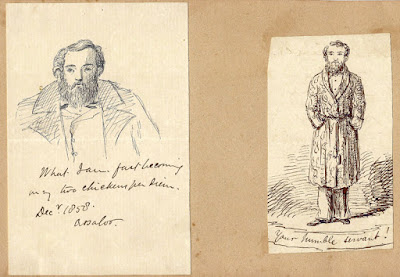 What I am fast becoming
on my two chickens per diem.
Decr 1858.
Your humble servant!